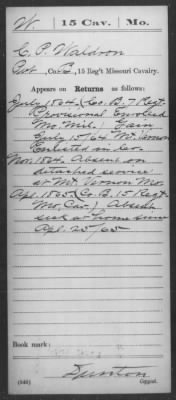 W. 15 Cav. Mo.
C. P. Waldron
Pvt, Co. B, 15 Reg't Missouri Cavalry.
Appears on Returns as follows:
July 1864, (Co. B. 7 Regt.
Provisional Enrolled
Mo. Mil.) Gain
July 15/64 Mt Vernon
Enlisted in Co.
Nov. 1864. Absent on
detached service
at Mt. Vernon Mo.
Apl. 1865 (Co. B. 15 Regt.
Mo. Cav.) Absent
sick at home since
Apl. 25/65
Book mark:
(546) Copyist.